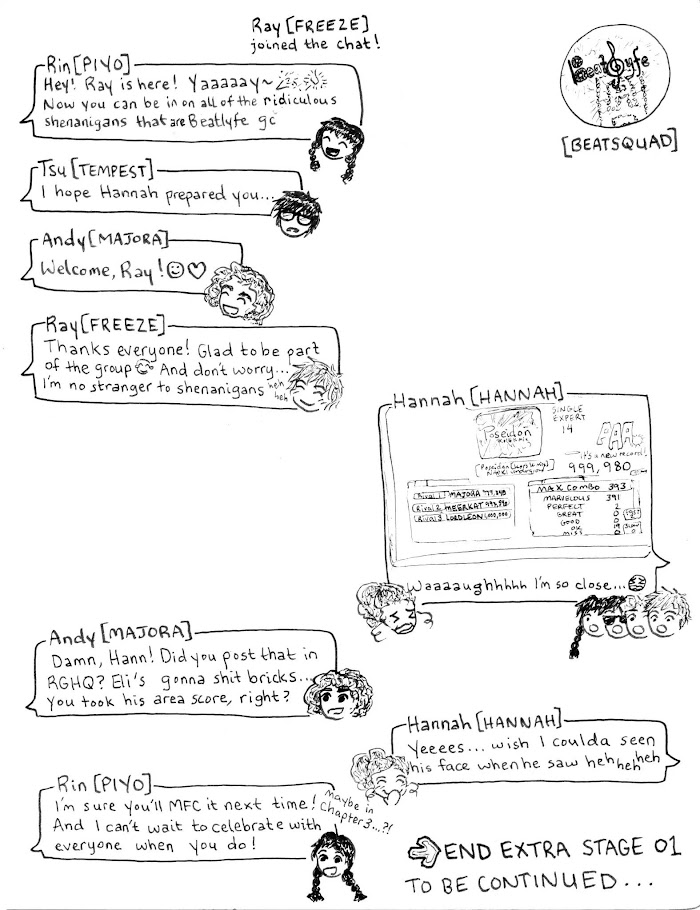 Ray [FREEZE]
joined the chat!
Beat Lyfe
[BEATSQUAD]
Rin [PIYO]
Hey! Ray is here! Yaaaaay~
Now you can be in on all of the ridiculous
shenanigans that are Beatlyfe gc
Tsu [TEMPEST]
I hope Hannah prepared you...
Andy [MAJORA]
Welcome, Ray!
Ray [FREEZE]
Thanks everyone! Glad to be part
of the group And don't worry...
I'm no stranger to shenanigans heh heh
Hannah [HANNAH]
Poseidon
SINGLE
EXPERT
14
AAA
it's a new record!
999,980
Rival 1 MAJORA
Rival 2 MEERKAT
Rival 3 LORDLEON
MAX COMBO 393
MARVELOUS 391
PERFECT 2
GREAT 0
GOOD 0
OK
MISS 0
Waaaaughhhhh I'm so close...
Andy [MAJORA]
Damn, Hann! Did you post that in
RGHQ? Eli's gonna shit bricks...
You took his area score, right?
Hannah [HANNAH]
Yeeees... wish I coulda seen
his face when he saw heh heh heh
Rin [PIYO]
I'm sure you'll MFC it next time!
And I can't wait to celebrate with
everyone when you do!
maybe in
Chapter 3...?!
END EXTRA STAGE 01
TO BE CONTINUED...